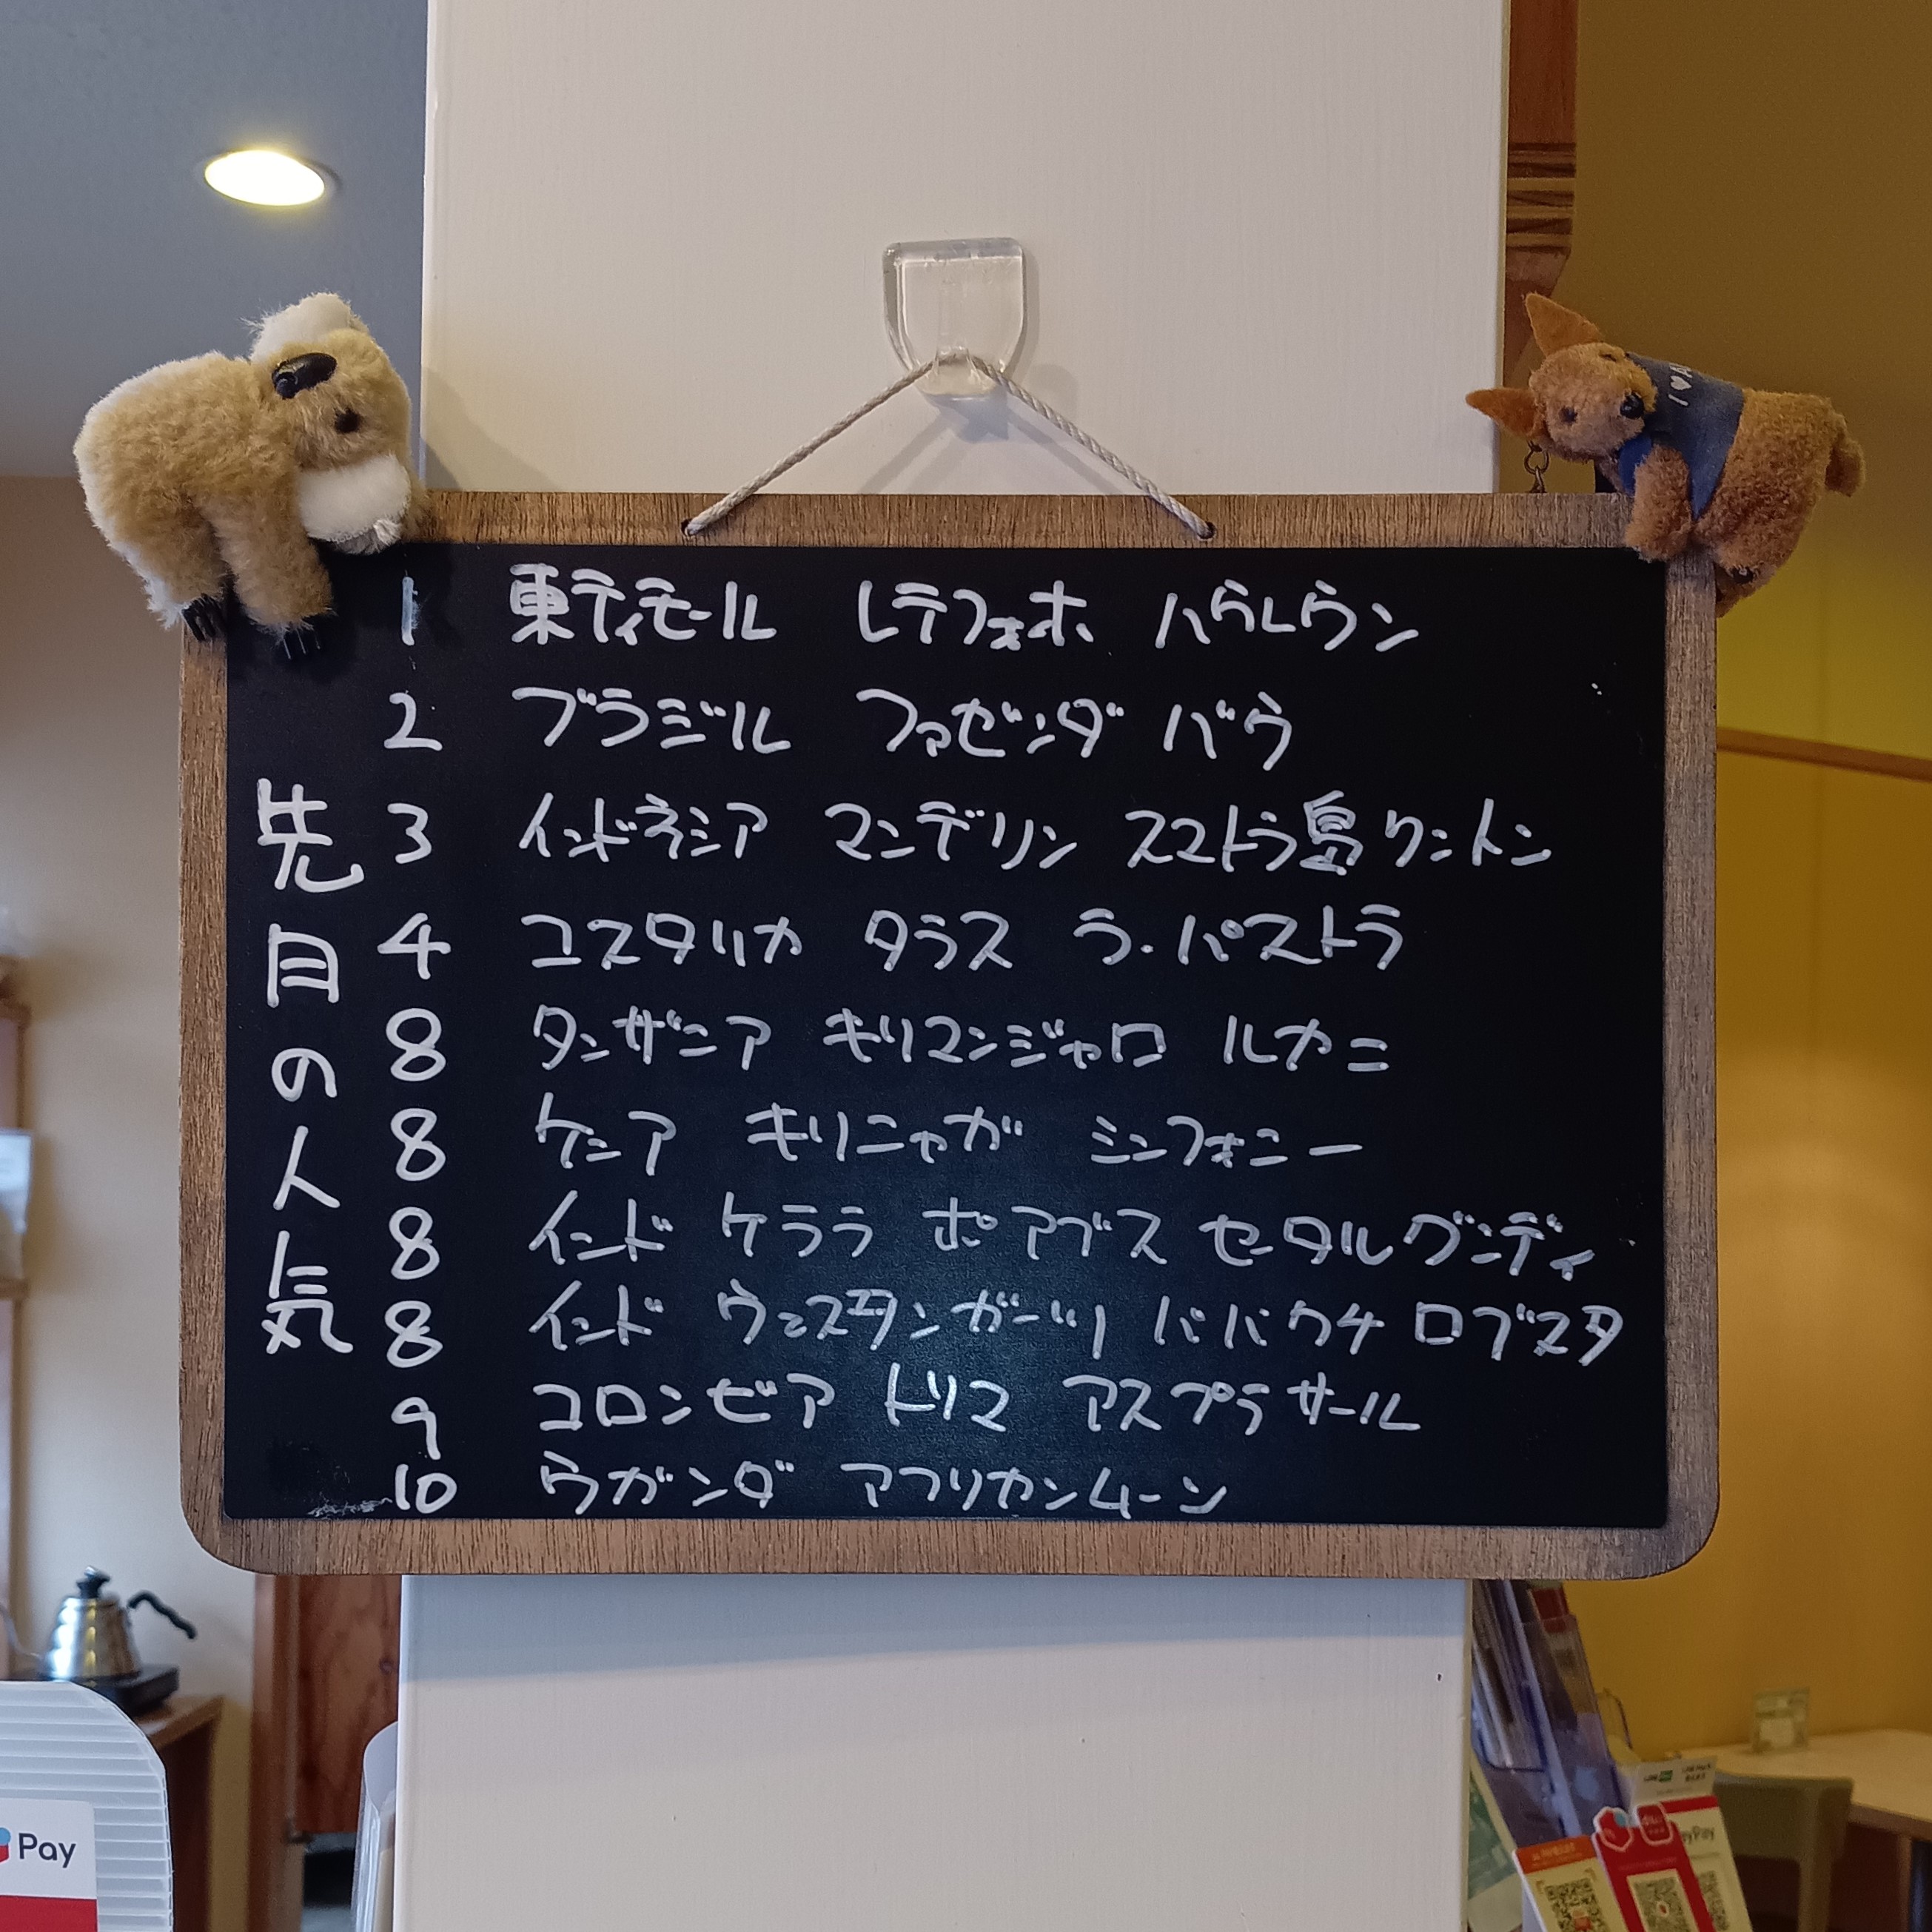 先月の人気
1 東ティモール レテフォホ ハウレウン
2 ブラジル ファゼンダ バウ
3 インドネシア マンデリン スマトラ島 クントン
4 コスタリカ タラス ラ・パストラ
8 タンザニア キリマンジャロ ルカニ
8 ケニア キリニャガ シンフォニー
8 インド ケララ ポアブス セータルグンディ
8 インド ウェスタンガーツ ババクチ ロブスタ
9 コロンビア トリマ アスプラサール
10 ウガンダ アフリカンムーン
I♥A
Pay
yPay